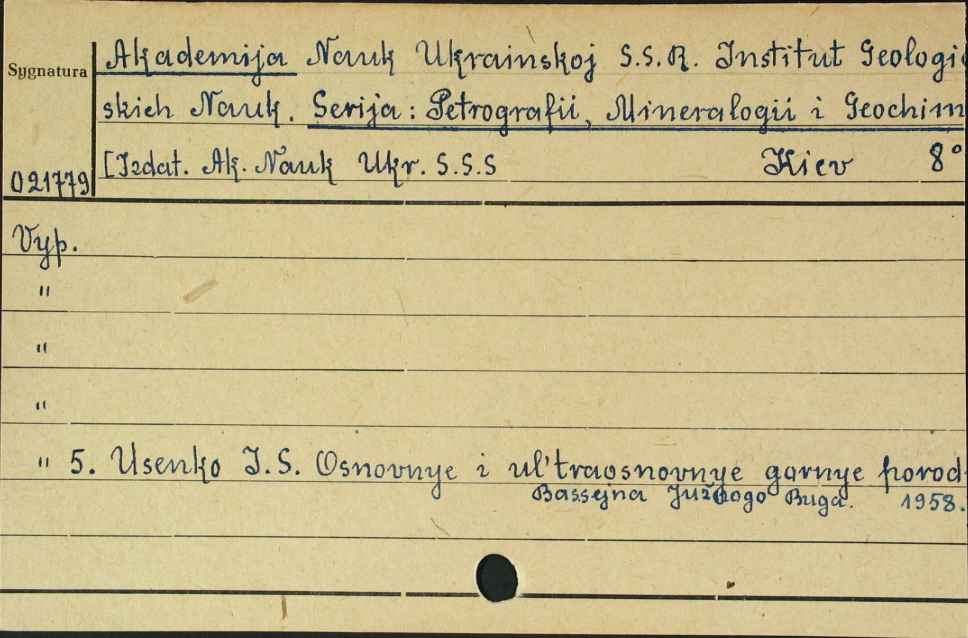 Sygnatura
Akademija Nauk Ukrainskoj S.S.R. Institut Geologi
skich Nauk. Serija: Petrografii, Mineralogii i Geochim
[Izdat. Ak. Nauk Ukr. S.S.S Kiev 8°
021779
Vyp.
"
"
"
" 5. Usenko I.S. Osnovnye i ul'traosnovnye gornye porod
Bassejna Južnogo Buga. 1958.